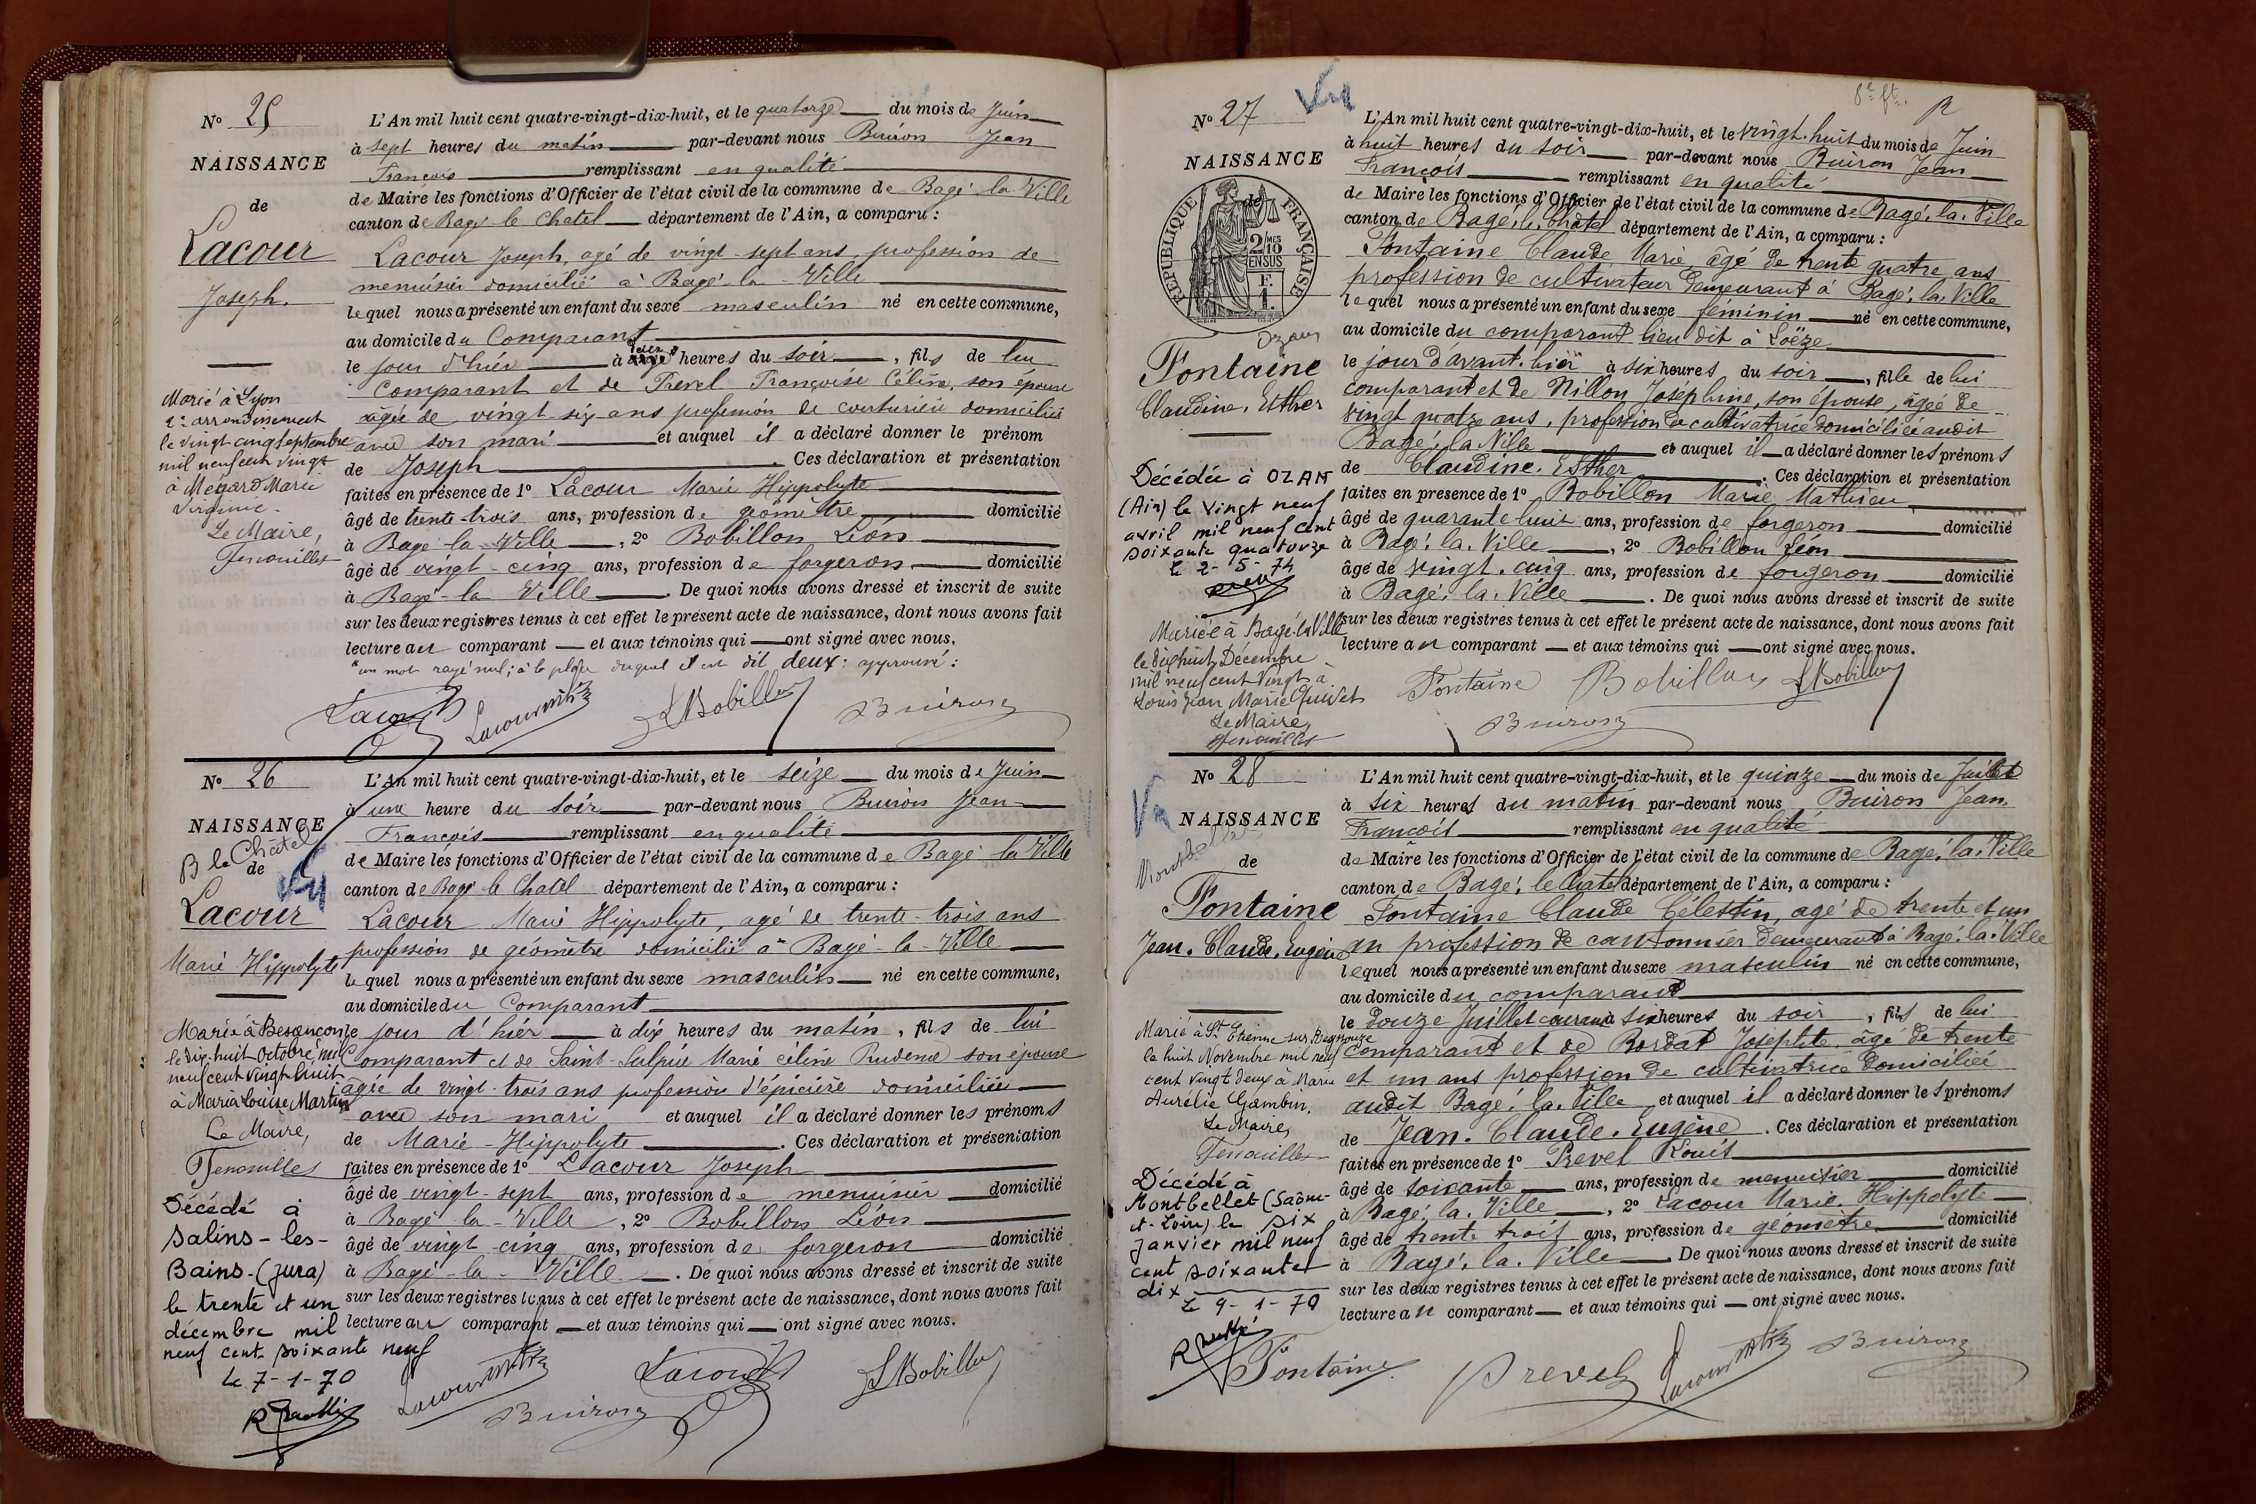 N° 25
NAISSANCE
de
Lacour
Joseph.
Marié à Lyon
2e arrondissement
le vingt cinq septembre
mil neuf cent vingt
à Megard Marie
Virginie.
Le Maire,
Fenouillet
L'An mil huit cent quatre-vingt-dix-huit, et le quatorze du mois de Juin
à sept heures du matin par-devant nous Buiron Jean
François remplissant en qualité
de Maire les fonctions d'Officier de l'état civil de la commune de Bagé la Ville
canton de Bagé le Chatel département de l'Ain, a comparu :
Lacour Joseph, agé de vingt-sept ans, profession de
menuisier domicilié à Bagé-la-Ville
lequel nous a présenté un enfant du sexe masculin né en cette commune,
au domicile du Comparant
le jour d'hier à deux heures du soir, fils de lui
comparant et de Prevel Françoise Céline, son épouse
agée de vingt-six ans profession de couturière domiciliée
avec son mari et auquel il a déclaré donner le prénom
de Joseph. Ces déclaration et présentation
faites en présence de 1° Lacour Marie Hippolyte
âgé de trente-trois ans, profession de géomètre domicilié
à Bagé-la-Ville, 2° Bobillon Léon
âgé de vingt-cinq ans, profession de forgeron domicilié
à Bagé-la-Ville. De quoi nous avons dressé et inscrit de suite
sur les deux registres tenus à cet effet le présent acte de naissance, dont nous avons fait
lecture au comparant et aux témoins qui ont signé avec nous.
un mot rayé nul; à la place duquel il est dit deux: approuvé:
Lacour J LacourMH LBobillon Buiron
N° 26
NAISSANCE
B le Châtel
de
Vu
Lacour
Marie Hippolyte
Marié à Besançon
le dix-huit Octobre mil
neuf cent vingt huit
à Maria Louise Martin
Le Maire,
Fenouillet
Décédé à
Salins-les-
Bains-(Jura)
le trente et un
décembre mil
neuf cent soixante neuf
Le 7-1-70
L'An mil huit cent quatre-vingt-dix-huit, et le seize du mois de Juin
à une heure du soir par-devant nous Buiron Jean
François remplissant en qualité
de Maire les fonctions d'Officier de l'état civil de la commune de Bagé la Ville
canton de Bagé le Chatel département de l'Ain, a comparu :
Lacour Marie Hippolyte, agé de trente-trois ans
profession de géomètre domicilié à Bagé-la-Ville
lequel nous a présenté un enfant du sexe masculin né en cette commune,
au domicile du Comparant
le jour d'hier à dix heures du matin, fils de lui
Comparant et de Saint-Sulpice Marie Céline Prudence son épouse
âgée de vingt-trois ans profession d'épicière domiciliée
avec son mari et auquel il a déclaré donner les prénoms
de Marie-Hippolyte. Ces déclaration et présentation
faites en présence de 1° Lacour Joseph
âgé de vingt-sept ans, profession de menuisier domicilié
à Bagé-la-Ville, 2° Bobillon Léon
âgé de vingt-cinq ans, profession de forgeron domicilié
à Bagé-la-Ville. De quoi nous avons dressé et inscrit de suite
sur les deux registres tenus à cet effet le présent acte de naissance, dont nous avons fait
lecture au comparant et aux témoins qui ont signé avec nous.
LacourMH Buiron Lacour J LBobillon
N° 27
Vu
NAISSANCE
de
RÉPUBLIQUE FRANÇAISE
2/10 EN SUS
F. 1.
Ozan
Fontaine
Claudine. Esther
Décédée à OZAN
(Ain) le vingt neuf
avril mil neuf cent
soixante quatorze
Le 2-5-74
Mariée à Bagé-la-Ville
le dix huit Décembre
mil neuf cent vingt à
Louis Jean Marie
Le Maire,
Fenouillet
L'An mil huit cent quatre-vingt-dix-huit, et le vingt-huit du mois de Juin
à huit heures du soir par-devant nous Buiron Jean
François remplissant en qualité
de Maire les fonctions d'Officier de l'état civil de la commune de Bagé. la. Ville
canton de Bagé. le. Châtel département de l'Ain, a comparu :
Fontaine Claude Marie âgé de trente quatre ans
profession de cultivateur demeurant à Bagé. la. Ville
lequel nous a présenté un enfant du sexe féminin né en cette commune,
au domicile du comparant lieu dit à Loëze
le jour d'avant-hier à six heures du soir, fille de lui
comparant et de Nillon Joséphine, son épouse, âgée de
vingt quatre ans, profession de cultivatrice domiciliée audit
Bagé. la Ville et auquel il a déclaré donner les prénoms
de Claudine. Esther. Ces déclaration et présentation
faites en présence de 1° Bobillon Marie Mathieu
âgé de quarante huit ans, profession de forgeron domicilié
à Bagé. la. Ville, 2° Bobillon Léon
âgé de vingt. cinq ans, profession de forgeron domicilié
à Bagé. la. Ville. De quoi nous avons dressé et inscrit de suite
sur les deux registres tenus à cet effet le présent acte de naissance, dont nous avons fait
lecture au comparant et aux témoins qui ont signé avec nous.
Fontaine Bobillon LBobillon
Buiron
N° 28
NAISSANCE
Montbellet
de
Fontaine
Jean. Claude. Eugène
Marié à St Etienne sur Reyssouze
le huit Novembre mil neuf
cent vingt deux à Marie
Aurélie Gambin.
Le Maire,
Fenouillet
Décédé à
Montbellet (Saône-
et-Loire) le six
janvier mil neuf
cent soixante
dix
Le 9-1-70
L'An mil huit cent quatre-vingt-dix-huit, et le quinze du mois de Juillet
à six heures du matin par-devant nous Buiron Jean.
François remplissant en qualité
de Maire les fonctions d'Officier de l'état civil de la commune de Bagé. la. Ville
canton de Bagé. le Chatel département de l'Ain, a comparu :
Fontaine Claude Célestin, agé de trente et un
an profession de cantonnier demeurant à Bagé. la. Ville
lequel nous a présenté un enfant du sexe masculin né en cette commune,
au domicile du comparant
le douze Juillet courant à six heures du soir, fils de lui
comparant et de Rordat Josephte âgé de trente
et un ans profession de cultivatrice domiciliée
audit Bagé. la. Ville et auquel il a déclaré donner les prénoms
de Jean. Claude. Eugène. Ces déclaration et présentation
faites en présence de 1° Prevel Louis
âgé de soixante ans, profession de menuisier domicilié
à Bagé. la. Ville, 2° Lacour Marie. Hippolyte
âgé de trente trois ans, profession de géomètre domicilié
à Bagé. la. Ville. De quoi nous avons dressé et inscrit de suite
sur les deux registres tenus à cet effet le présent acte de naissance, dont nous avons fait
lecture au comparant et aux témoins qui ont signé avec nous.
Fontaine Prevel LacourMH Buiron